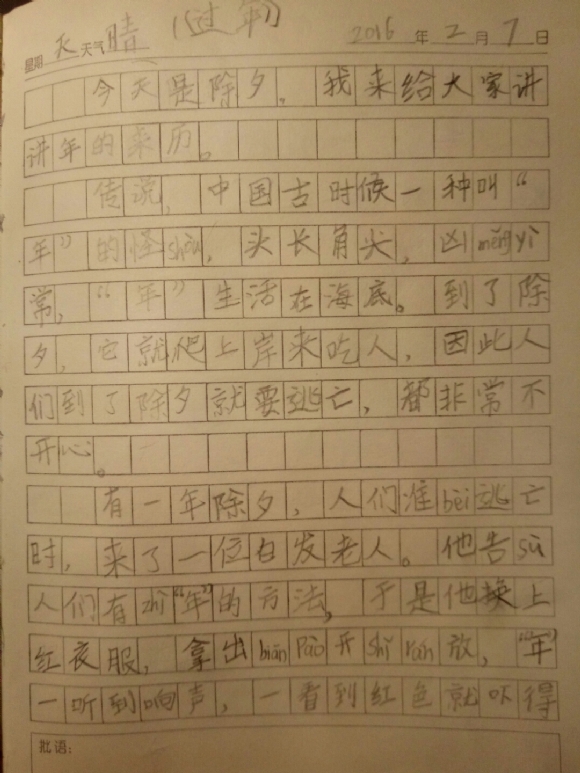 星期 天 天气 晴 (过年) 2016 年 2 月 7 日
今天是除夕。我来给大家讲
讲年的来历。
传说，中国古时候一种叫“
年”的怪shòu，头长角尖，凶měngyì
常，“年”生活在海底。到了除
夕，它就爬上岸来吃人，因此人
们到了除夕就要逃亡，都非常不
开心。
有一年除夕，人们准bèi逃亡
时，来了一位白发老人。他告sù
人们有zhì“年”的方法，于是他换上
红衣服，拿出biānpào开shǐrán放，“年”
一听到响声，一看到红色就吓得
批语：